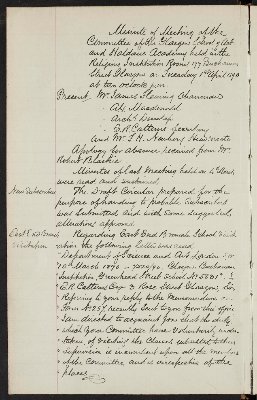 Minute of Meeting of the
Committee of the Glasgow School of Art
and Haldane Academy held in the
Religious Institution Rooms 177 Buchanan
Street Glasgow on Tuesday 1st April 1890
at ten o'clock
Present Mr James Fleming Chairman
Alexr Macdonald
Archd Dunlop
E R Catterns Secretary
And Mr F H Newbery Headmaster
Apology for absence received from Mr
Robert Blackie
Minutes of last meeting held on
were read and sustained
New Subscribers The Draft Circular prepared for the
purpose of handing to probable Subscribers
was submitted and with some suggested
alterations approved.
East End Branch Regarding East End Branch School
the following letter was read
Department of Science and Art London S.W
10th March 1890
Institution Greenhead Street School No
E R Catterns Esqr Rose Street Glasgow Sir
Referring to your reply to the Memorandum
Form No 257 recently sent to you from this office
I am directed to acquaint you that the duty
which your Committee have Voluntarily under-
taken of visiting the Classes
supervision is incumbent upon all the members
of the Committee and is irrespective of the
place